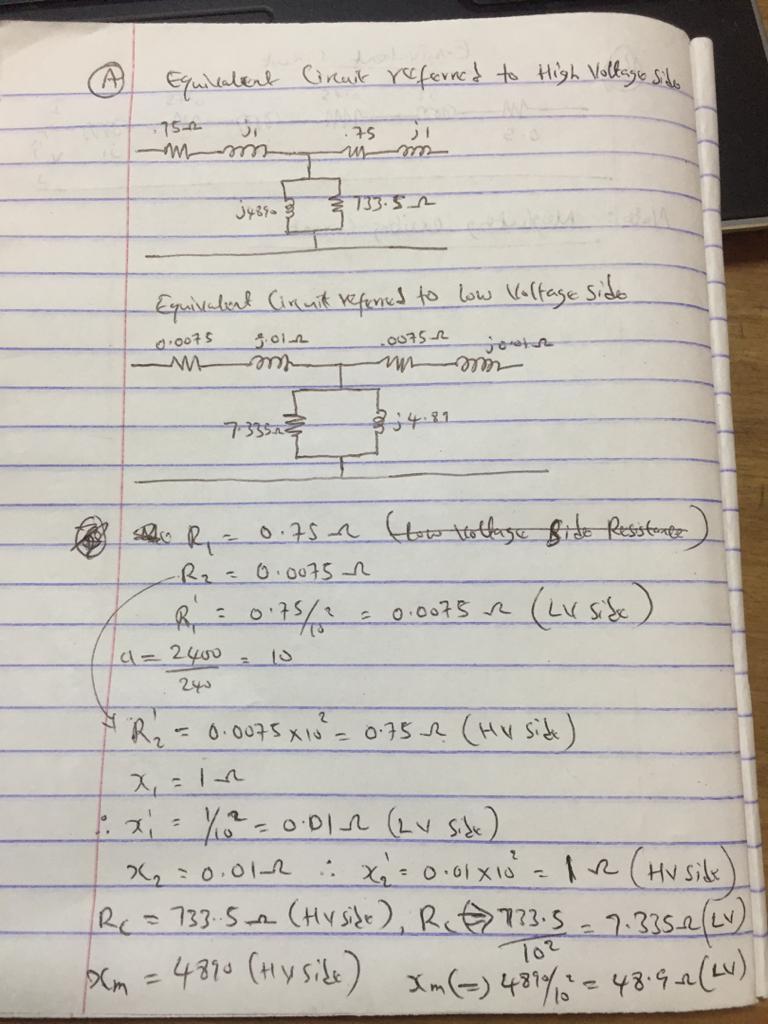 A Equivalent Circuit referred to High Voltage Side
.75Ω j1 .75 j1
j4890 733.5Ω
Equivalent Circuit referred to Low Voltage Side
0.0075 j.01Ω .0075Ω j0.01Ω
7.335Ω j4.89
R₁ = 0.75 Ω (Low Voltage Side Resistance)
R₂ = 0.0075 Ω
R₁' = 0.75/10² = 0.0075 Ω (LV Side)
a = 2400/240 = 10
R₂' = 0.0075 × 10² = 0.75 Ω (HV Side)
x₁ = 1 Ω
∴ x₁' = 1/10² = 0.01 Ω (LV Side)
x₂ = 0.01 Ω ∴ x₂' = 0.01 × 10² = 1 Ω (HV Side)
Rc = 733.5 Ω (HV Side), Rc ⇒ 733.5/10² = 7.335 Ω (LV)
xm = 4890 (HV Side) xm (=) 4890/10² = 48.9 Ω (LV)